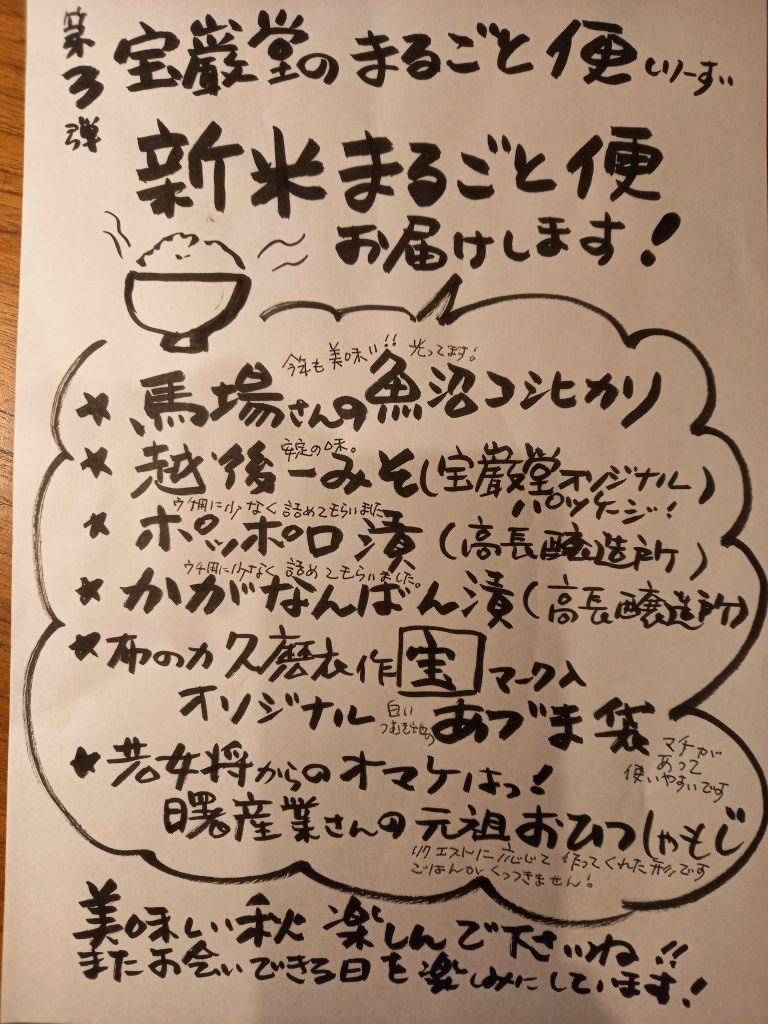 第3弾
宝巌堂のまるごと便しりーずぃ
新米まるごと便
お届けします!
今年も美味い!! 光ってます!
★馬場さんの魚沼コシヒカリ
安定の味。
★越後一みそ(宝巌堂オリジナルパッケージ!)
ウチ用に少なく詰めてもらいました
★ポッポロ漬(高長醸造所)
ウチ用に少なく詰めてもらいました。
★かがなんばん漬(高長醸造所)
★布のカ久磨衣作宝マーク入
オリジナル白いつむぎ地のあづま袋
マチがあって使いやすいです
★若女将からのオマケはっ!
曙産業さんの元祖おひつしゃもじ
リクエストに応じて作ってくれた形です
ごはんがくっつきません!
美味しい秋楽しんで下さいね!!
またお会いできる日を楽しみにしています!